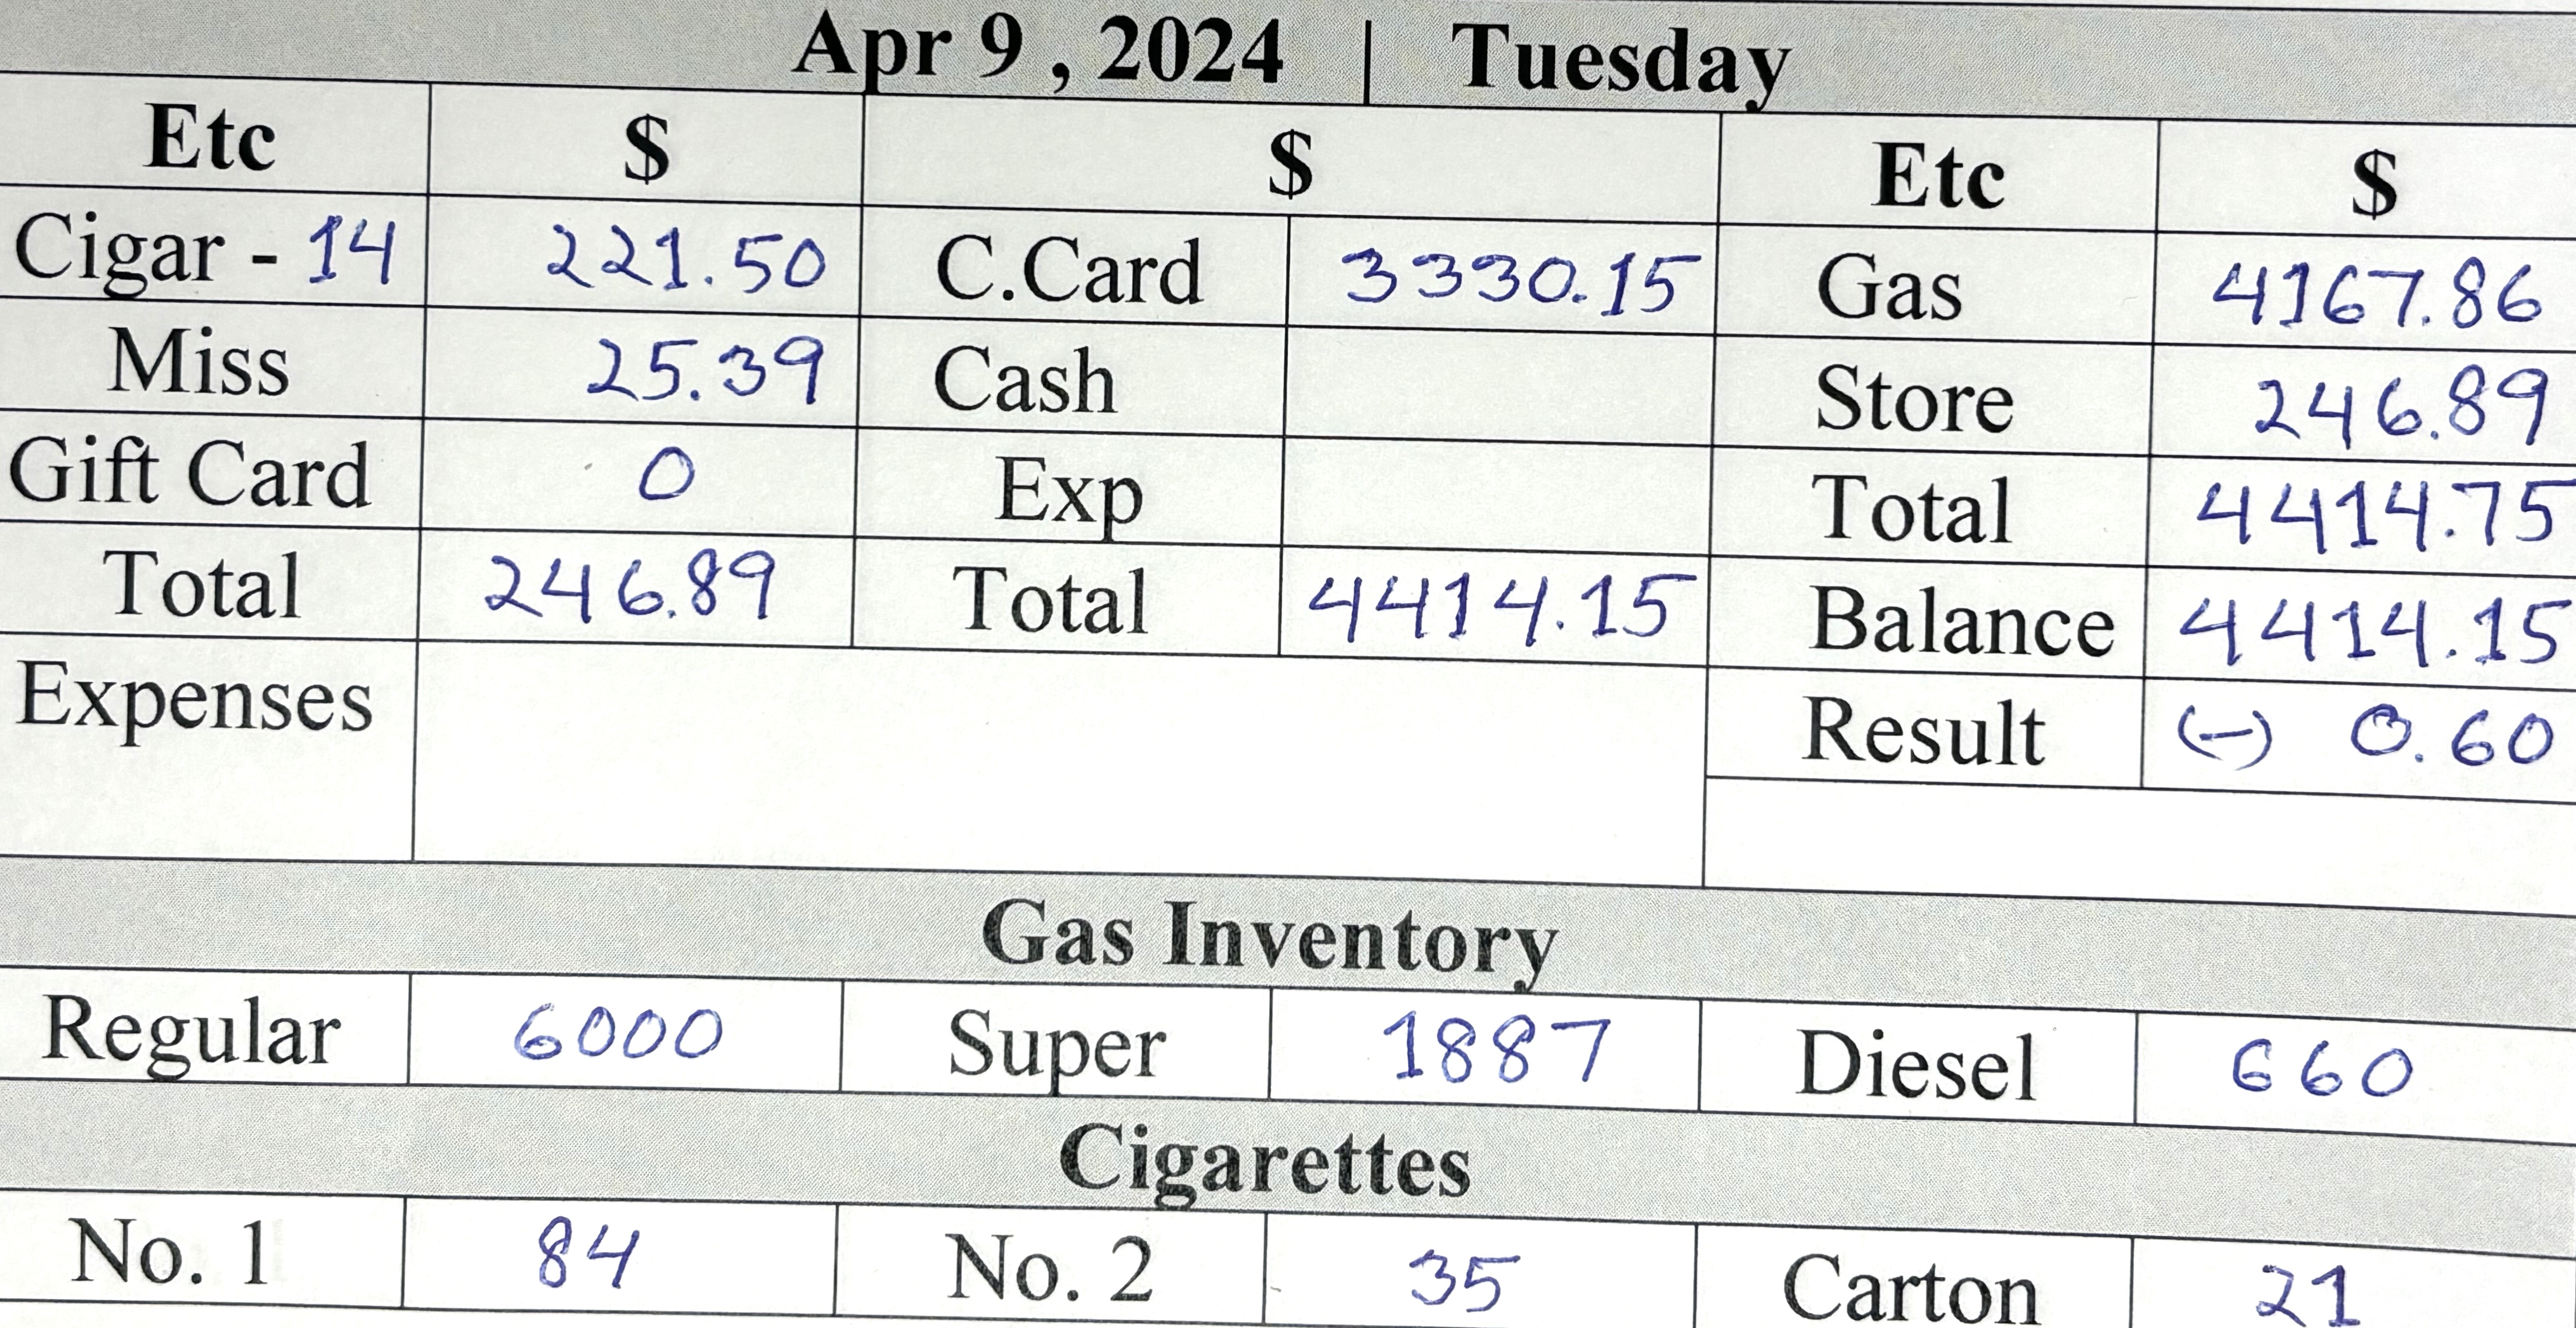 Apr 9 , 2024 | Tuesday
Etc $ $ Etc $
Cigar - 14 221.50 C.Card 3330.15 Gas 4167.86
Miss 25.39 Cash Store 246.89
Gift Card 0 Exp Total 4414.75
Total 246.89 Total 4414.15 Balance 4414.15
Expenses Result (-) 0.60
Gas Inventory
Regular 6000 Super 1887 Diesel 660
Cigarettes
No. 1 84 No. 2 35 Carton 21